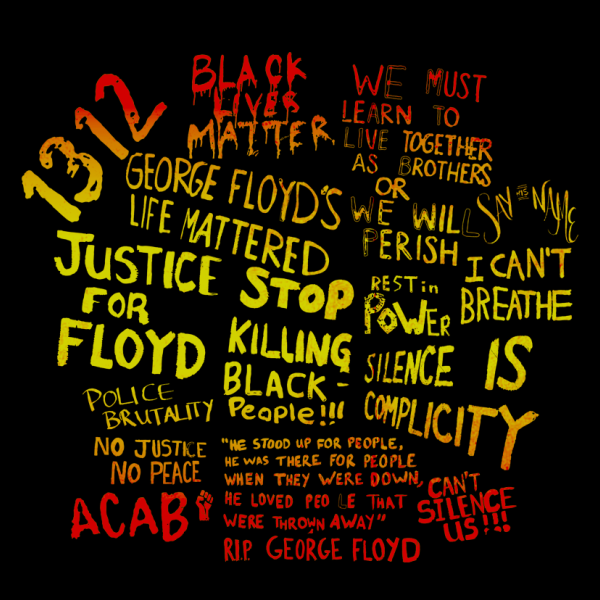 1312
BLACK
LIVES
MATTER
WE MUST
LEARN TO
LIVE TOGETHER
AS BROTHERS
OR
WE WILL
PERISH
SAY HIS NAME
GEORGE FLOYD'S
LIFE MATTERED
JUSTICE
FOR
FLOYD
STOP
KILLING
BLACK-
People!!!
I CAN'T
BREATHE
REST in
POWER
SILENCE IS
COMPLICITY
POLICE
BRUTALITY
NO JUSTICE
NO PEACE
ACAB
"HE STOOD UP FOR PEOPLE,
HE WAS THERE FOR PEOPLE
WHEN THEY WERE DOWN,
HE LOVED PEOPLE THAT
WERE THROWN AWAY"
R.I.P. GEORGE FLOYD
CAN'T
SILENCE
US!!!